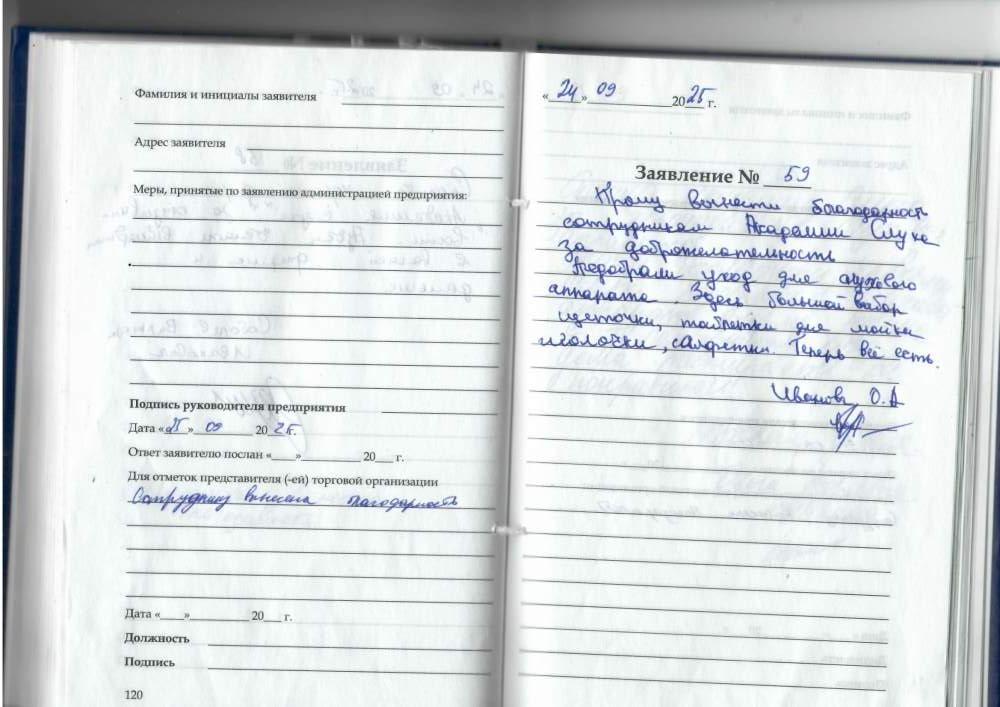 Фамилия и инициалы заявителя
Адрес заявителя
Меры, принятые по заявлению администрацией предприятия:
Подпись руководителя предприятия
Дата «25» 09 2025г.
Ответ заявителю послан «____»__________ 20___ г.
Для отметок представителя (-ей) торговой организации
Сотруднику вынесена благодарность
Дата «____»__________ 20___ г.
Должность
Подпись
120
«24» 09 2025 г.
Заявление № 59
Прошу вынести благодарность
сотрудникам Академии Слуха
за доброжелательность
Подобрали уход для слухового
аппарата. Здесь большой выбор
щеточки, таблетки для мойки
иголочки, салфетки. Теперь всё есть.
Иванова О.А